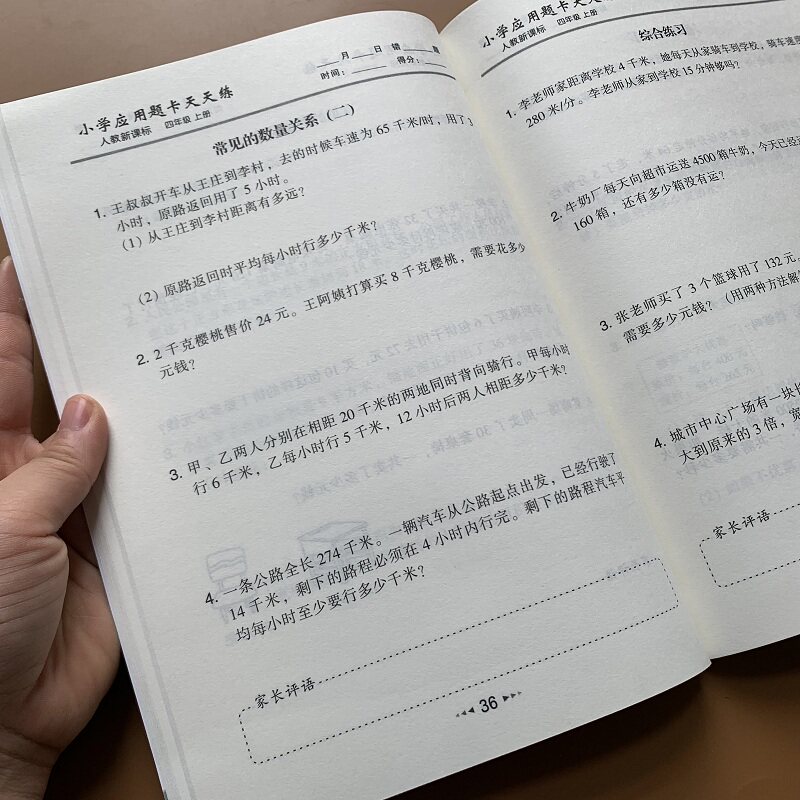 小学应用题卡天天练
人教新课标 四年级 上册
___月___日 错___题
时间:______ 得分:______
常见的数量关系(二)
1. 王叔叔开车从王庄到李村,去的时候车速为 65 千米/时,用了 3
小时,原路返回用了 5 小时。
(1) 从王庄到李村距离有多远?
(2) 原路返回时平均每小时行多少千米?
2. 2 千克樱桃售价 24 元。王阿姨打算买 8 千克樱桃,需要花多少
元钱?
3. 甲、乙两人分别在相距 20 千米的两地同时背向骑行。甲每小时
行 6 千米,乙每小时行 5 千米,12 小时后两人相距多少千米?
4. 一条公路全长 274 千米。一辆汽车从公路起点出发,已经行驶了
14 千米,剩下的路程必须在 4 小时内行完。剩下的路程汽车平
均每小时至少要行多少千米?
家长评语
36
小学应用题卡天天练
人教新课标 四年级 上册
综合练习
1. 李老师家距离学校 4 千米,她每天从家骑车到学校,骑车速度
280 米/分。李老师从家到学校 15 分钟够吗?
2. 牛奶厂每天向超市运送 4500 箱牛奶,今天已经运
160 箱,还有多少箱没有运?
3. 张老师买了 3 个篮球用了 132 元。
需要多少元钱?(用两种方法解
4. 城市中心广场有一块长
大到原来的 3 倍,宽
家长评语